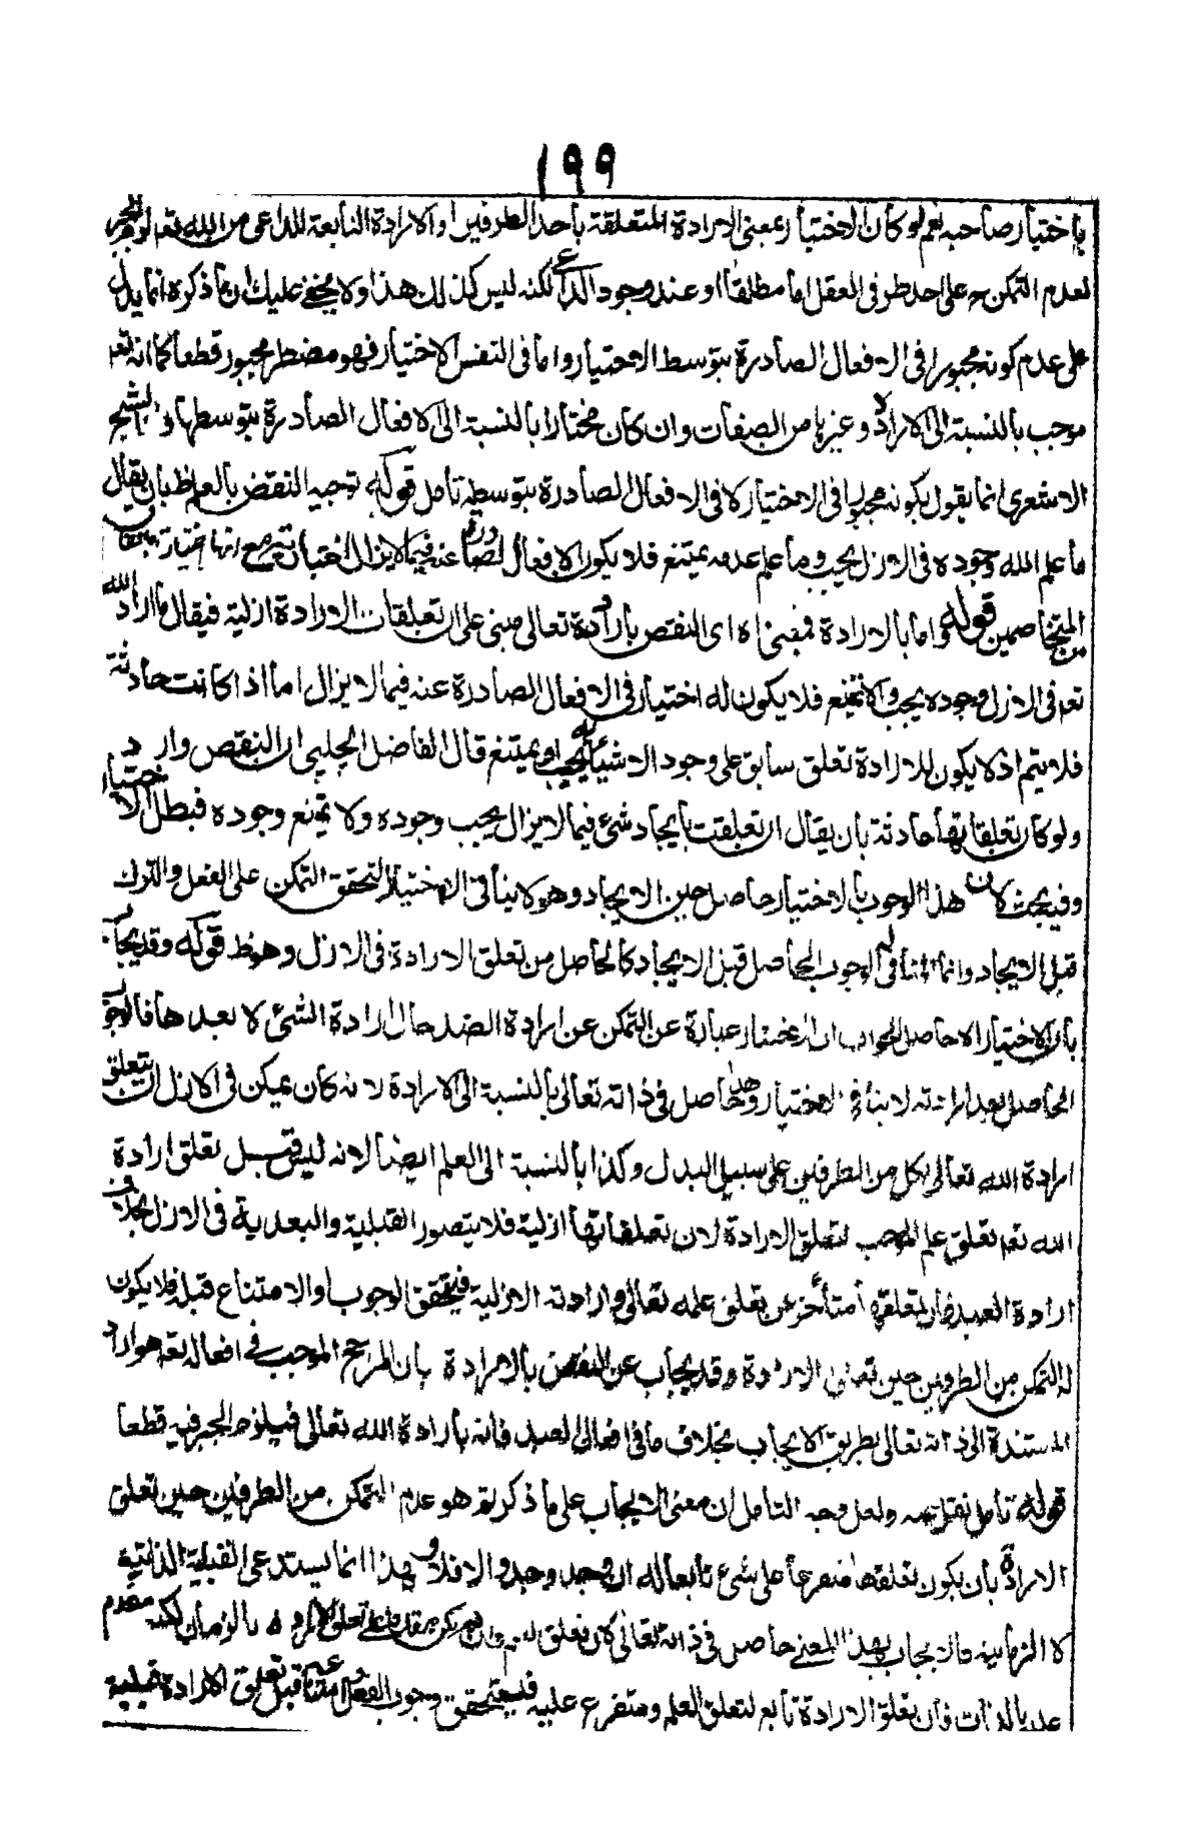 ١٩٩
باختيار صاحبه نعم لو كان الاختيار بمعنى الارادة المتعلقة بأحد الطرفين او الارادة التابعة للداعى من الله تعم لوجبر
لعدم التمكن ح على احد طرفى العقل اما مطلقا او عند وجود الداعى لكنه ليس كذلك هذا ولا يخفى عليك ان ما ذكره انما يدل
على عدم كونه مجبورا فى الافعال الصادرة بتوسط الاختيار واما فى النفس الاختيار فهو مضطر مجبور قطعا كما انه تعم
موجب بالنسبة الى الارادة وغيرها من الصفات وان كان مختارا بالنسبة الى الافعال الصادرة بتوسطها و الشيخ
الاشعرى انما يقول بكونه مجبورا فى الاختيار لا فى الافعال الصادرة بتوسطه تامل قوله توجيه النقض بالعلم ظ بان يقال
ما علم الله وجوده فى الازل يجب وما علم عدمه يمتنع فلا يكون الافعال الصادرة عنه فيما لايزال اختيارية مع انها اختيارية باتفاق
المتخاصمين قوله واما بالارادة فمبنى اه اى النقض بارادة تعالى مبنى على ان تعلقات الارادة ازلية فيقال ما اراد الله
تعم فى الازل وجوده يجب والا يمتنع فلا يكون له اختيار فى الافعال الصادرة عنه فيما لايزال اما اذا كانت حادثة
فلا يتم اذ لا يكون للارادة تعلق سابق على وجود الاشياء ليجب او يمتنع قال الفاضل الچلپى ان النقض وارد
ولو كان تعلقاتها حادثة بان يقال ان تعلقت بايجاد شئ فيما لايزال يجب وجوده ولا يمتنع وجوده فبطل الاختيار
وفيه بحث لان هذا الوجوب بالاختيار حاصل حين الايجاد وهو لا ينافى الاختيار لتحقق التمكن على الفعل والترك
قبل الايجاد وانما المنافى له الوجوب الحاصل قبل الايجاد كالحاصل من تعلق الارادة فى الازل وهو ظ قوله وقد يجاب
بان الاختيار الا حاصل الجواب ان الاختيار عبارة عن التمكن عن ارادة الضد حال ارادة الشئ لا بعدها فالوجوب
الحاصل بعد ارادته لا ينافى الاختيار وهذا حاصل فى ذاته تعالى بالنسبة الى الارادة لانه كان يمكن فى الازل ان يتعلق
ارادة الله تعالى بكل من الطرفين على سبيل البدل وكذا بالنسبة الى العلم ايضا لانه ليس قبل تعلق ارادة
الله تعم تعلق علم الموجب لتعلق الارادة لان تعلقاتها ازلية فلا يتصور القبلية والبعدية فى الازل بخلاف
ارادة العبد فان تعلقها متأخر عن تعلق علمه تعالى وارادته الازلية فيتحقق الوجوب او الامتناع قبله فلا يكون
له التمكن من الطرفين حين تعلق الارادة وقد يجاب عن النقض بالارادة بان المرجح الموجب فى افعاله تعم هو اراد
المستندة الى ذاته تعالى بطريق الايجاب بخلاف ما فى افعال العبد فانه بارادة الله تعالى فيلزم الجبر فيه قطعا
قوله تأمل نقل عنه ولعل وجه التامل ان معنى الايجاب على ما ذكرتم هو عدم التمكن من الطرفين حين تعلق
الارادة بان يكون تعلقها متفرعا على شئ تابعا له ان وجد وجد والا فلا وهذا انما يستدعى القبلية الذاتية
لا الزمانية فالايجاب بهذا المعنى حاصل فى ذاته تعالى لان تعلق العلم وان لم يكن مقدما على تعلق الارادة بالزمان لكنه مقدم
عليه بالذات فان تعلق الارادة تابع لتعلق العلم ومتفرع عليه فيتحقق وجوب الفعل او امتناعه قبل تعلق الارادة قبلية